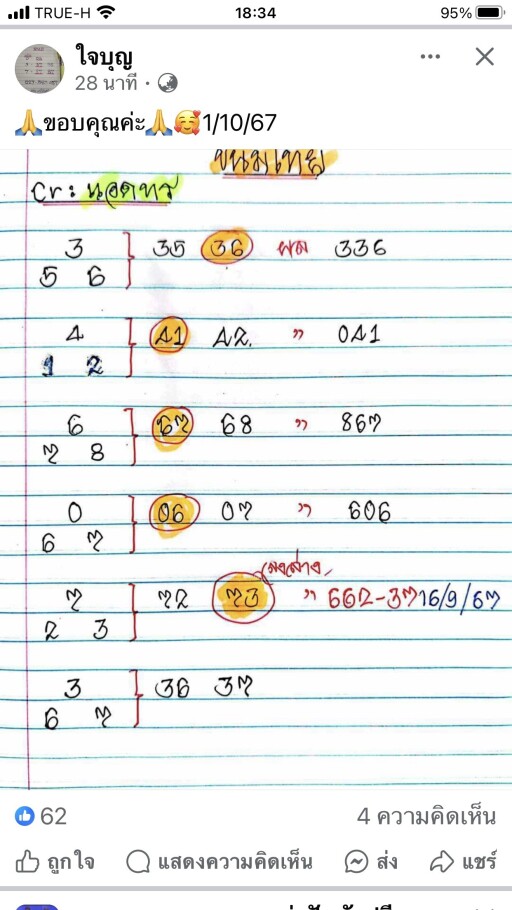 TRUE-H 18:34 95%
ใจบุญ
28 นาที
🙏ขอบคุณค่ะ🙏🥰1/10/67
ขนมไทย
Cr: นอดทร
3 35 36 ผล 336
5 6
4 41 42 " 041
1 2
6 67 68 " 867
7 8
0 06 07 " 606
6 7
มงล่าง
7 72 73 " 662-37 16/9/67
2 3
3 36 37
6 7
62 4 ความคิดเห็น
ถูกใจ แสดงความคิดเห็น ส่ง แชร์